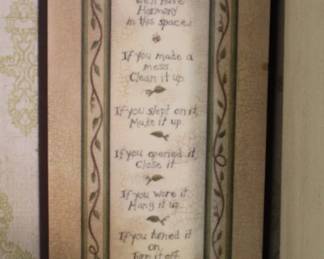 Harmony
in this space
If you made a
mess
Clean it up
If you slept on it,
Make it up
If you opened it,
Close it
If you wore it
Hang it up
If you turned it
on,
Turn it off